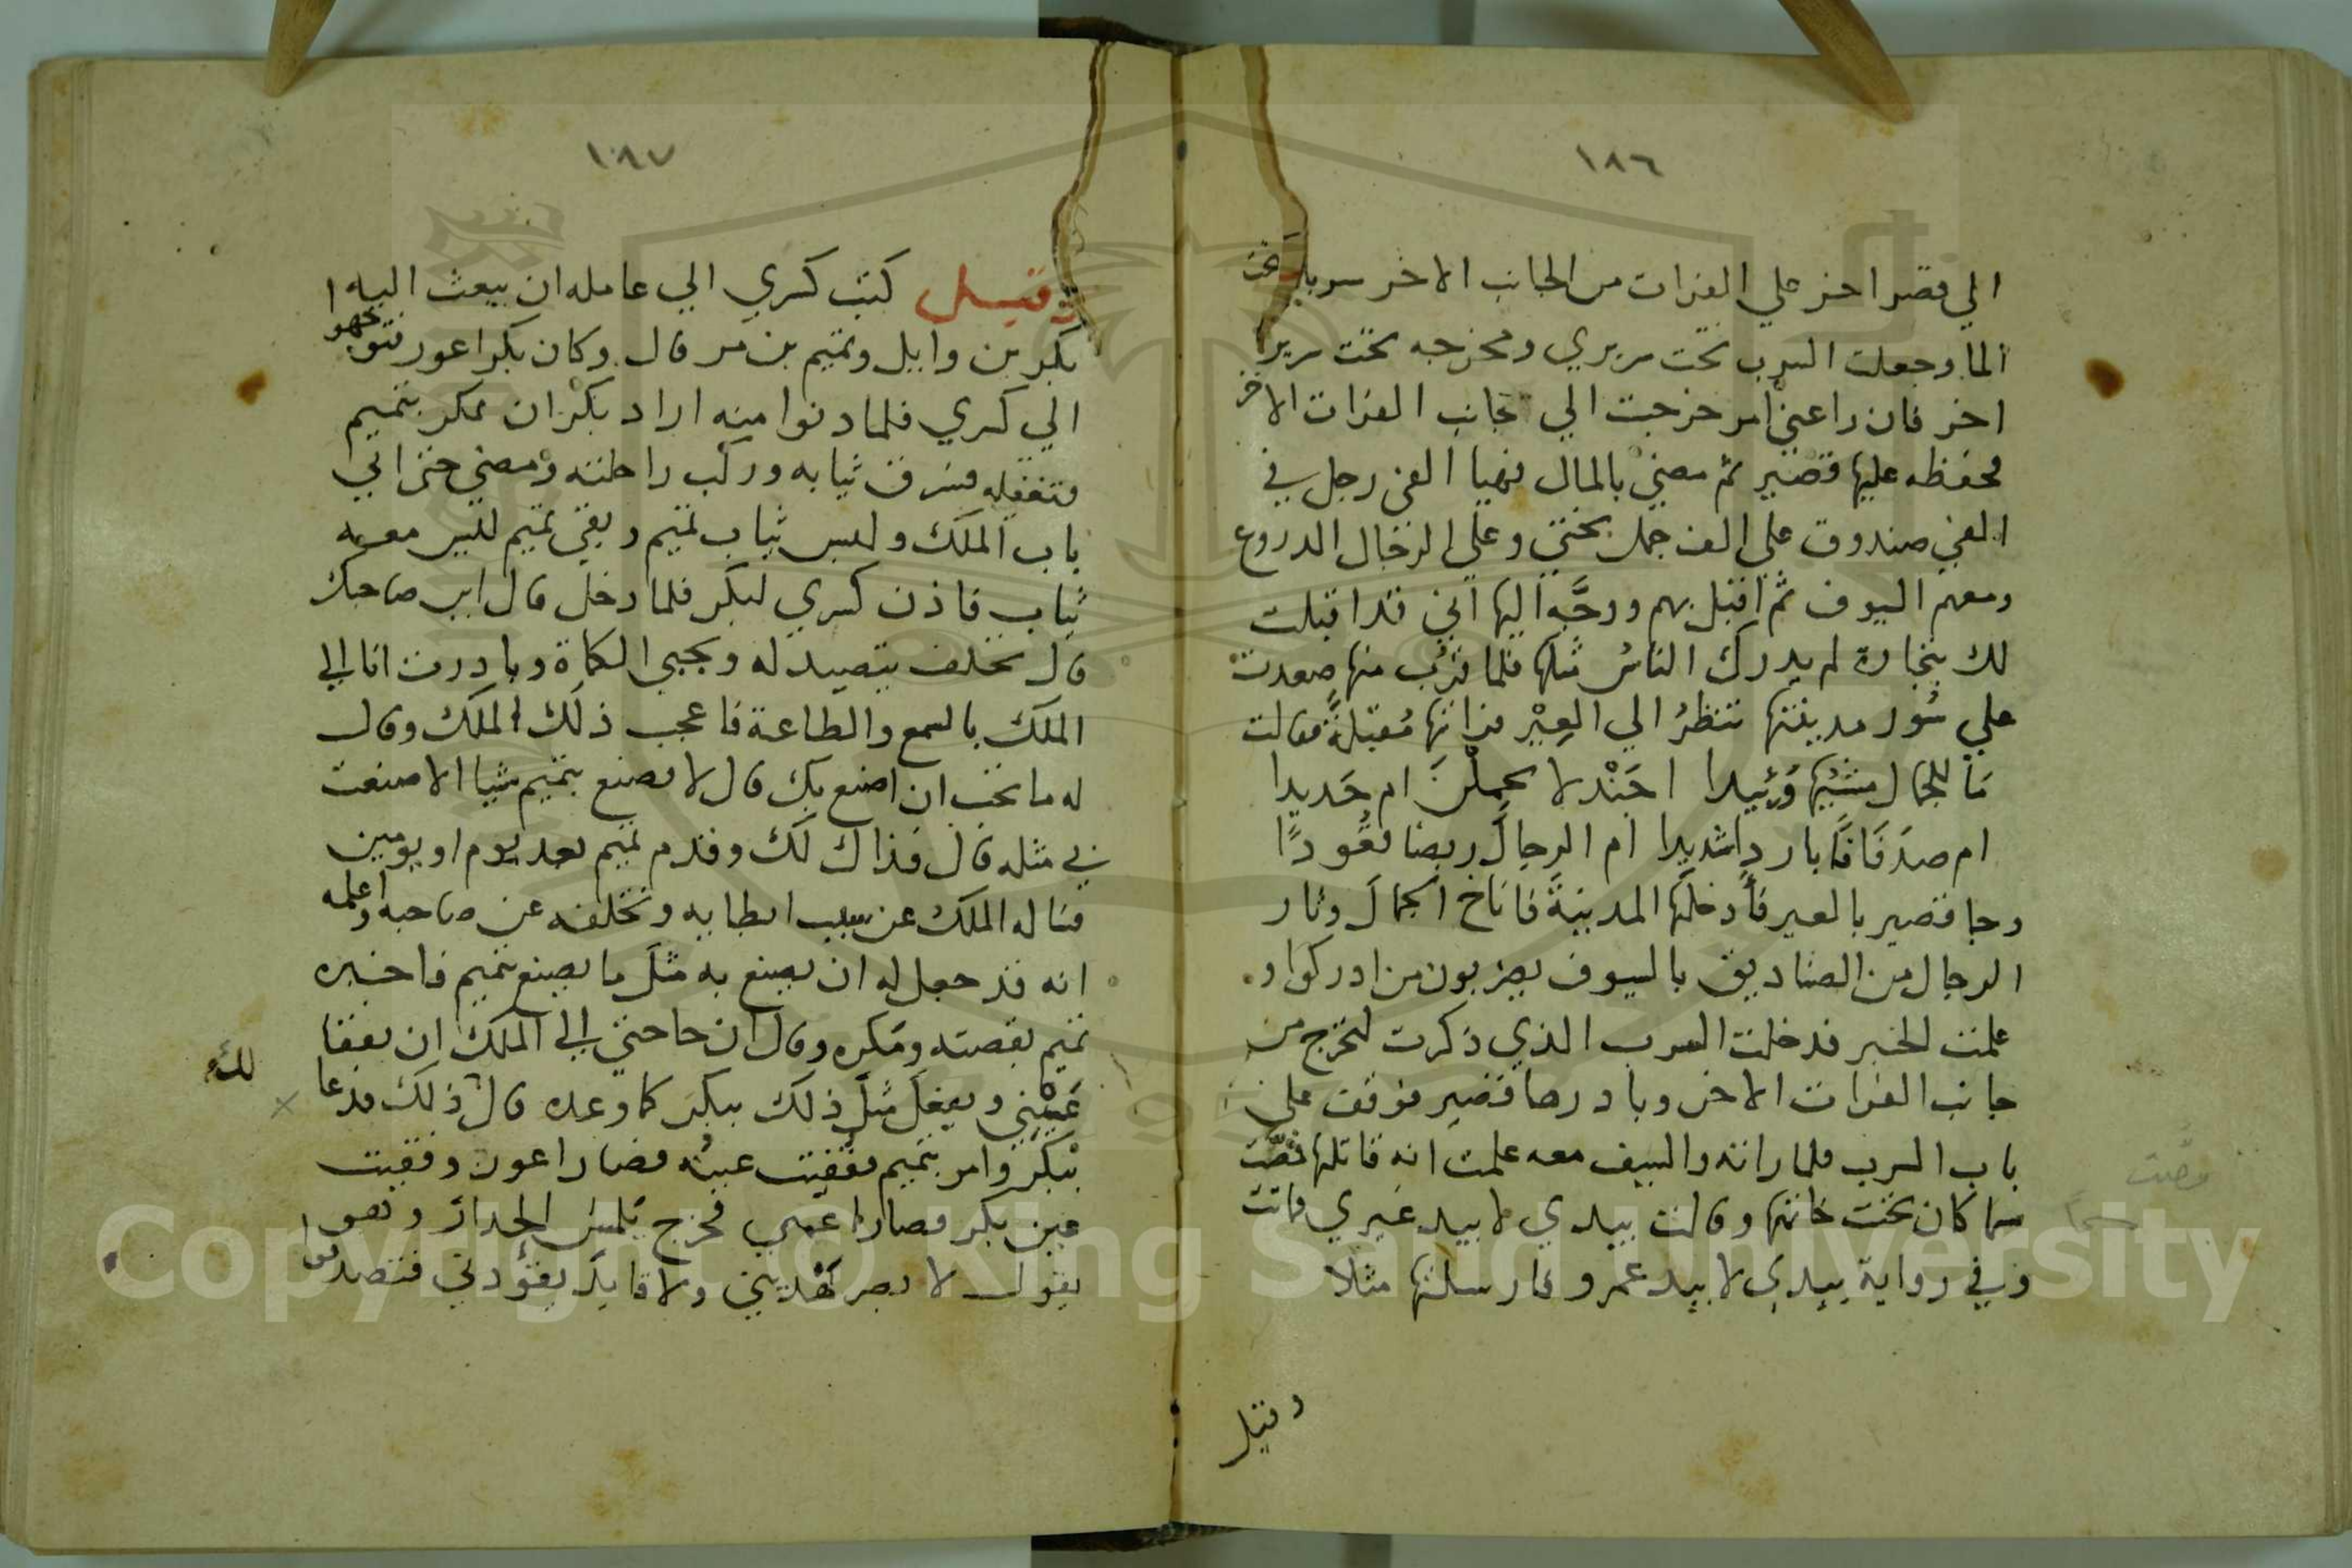 ١٨٦
الي قصر اخر علي الفرات من الجانب الاخر سربا تحت
الما وجعلت السرب تحت سريري ومخرجه تحت سرير
اخر فان راعني امر خرجت الي جانب الفرات الاخر
فحفظه عليها قصير ثم مضي بالمال فهيا الفي رجل في
الفي صندوق علي الف جمل بختي وعلي الرجال الدروع
ومعهم السيوف ثم اقبل بهم ووجَّه اليها اني قد اقبلت
لك بتجارة لم يدرك الناسُ مثلها فلما قرُب منها صعدت
علي سُور مدينتها تنظرُ الي العِيْر فراتها مُقبلةً فقالت
مَا للجمال مشيُها وَئِيدا اجَنْدلا يحملْنَ ام حَديدا
ام صَرَفَانًا باردا شديدا ام الرجالَ ربضا قعُودًا
وجا قصير بالعير فأدخلَها المدينةَ فاناخ الجمالَ وثار
الرجال من الصناديق بالسيوف يضربون من ادركوا و
علمت الخبر فدخلت السرب الذي ذكرت لتخرج من
جانب الفرات الاخر وبادرها قصير فوقف علي
باب السرب فلما راته والسيف معه علمت انه قاتلها فمصّت
سما كان تحت خاتمها وقالت بيدي لا بيد غيري فماتت
وفي رواية بيدي لا بيد عمرو فارسلتها مثلا
وقيل
فمصّت
١٨٧
وقيل كتب كسري الي عامله ان يبعث اليه ا
بكر بن وايل وتميم بن مر قال وكان بكر اعور فتوجهوا
الي كسري فلما دنوا منه اراد بكرْ ان يمكر بتميم
فتغفله فسرق ثيابه وركب راحلته ومضي حتي اتي
باب الملك ولبس ثياب تميم وبقي تميم لَيس معه
ثياب فاذن كسري لبكر فلما دخل قال اين صاحبك
قال تخلف يتصيد له ويجبي الكماة وبادرت انا الي
الملك بالسمع والطاعة فاعجب ذلك الملك وقال
له ما تحب ان اصنع بك قال لا تصنع بتميم شيا الا صنعت
بي مثله قال فذاك لك وقدم تميم بعد يوم او يومين
فساله الملك عن سبب ابطايه وتخلفه عن صاحبه واعلمه
انه قد جعل له ان يصنع به مثلَ ما يصنع بتميم فاخبره
تميم بقصته ومَكره وقال ان حاجتي الي الملك ان يفقا
عَيْني ويفعل مثلَ ذلك ببكر كما وعده قال ذلك لك فدعا
ببكر وامر بتميم ففُقِيت عينُه فصار اعور وفقيت
عين بكر فصار اعمي فخرج يلمس الجدار وهو
يقول لا بصر يَهْديني ولا قايد يقُودني فتصدقوا